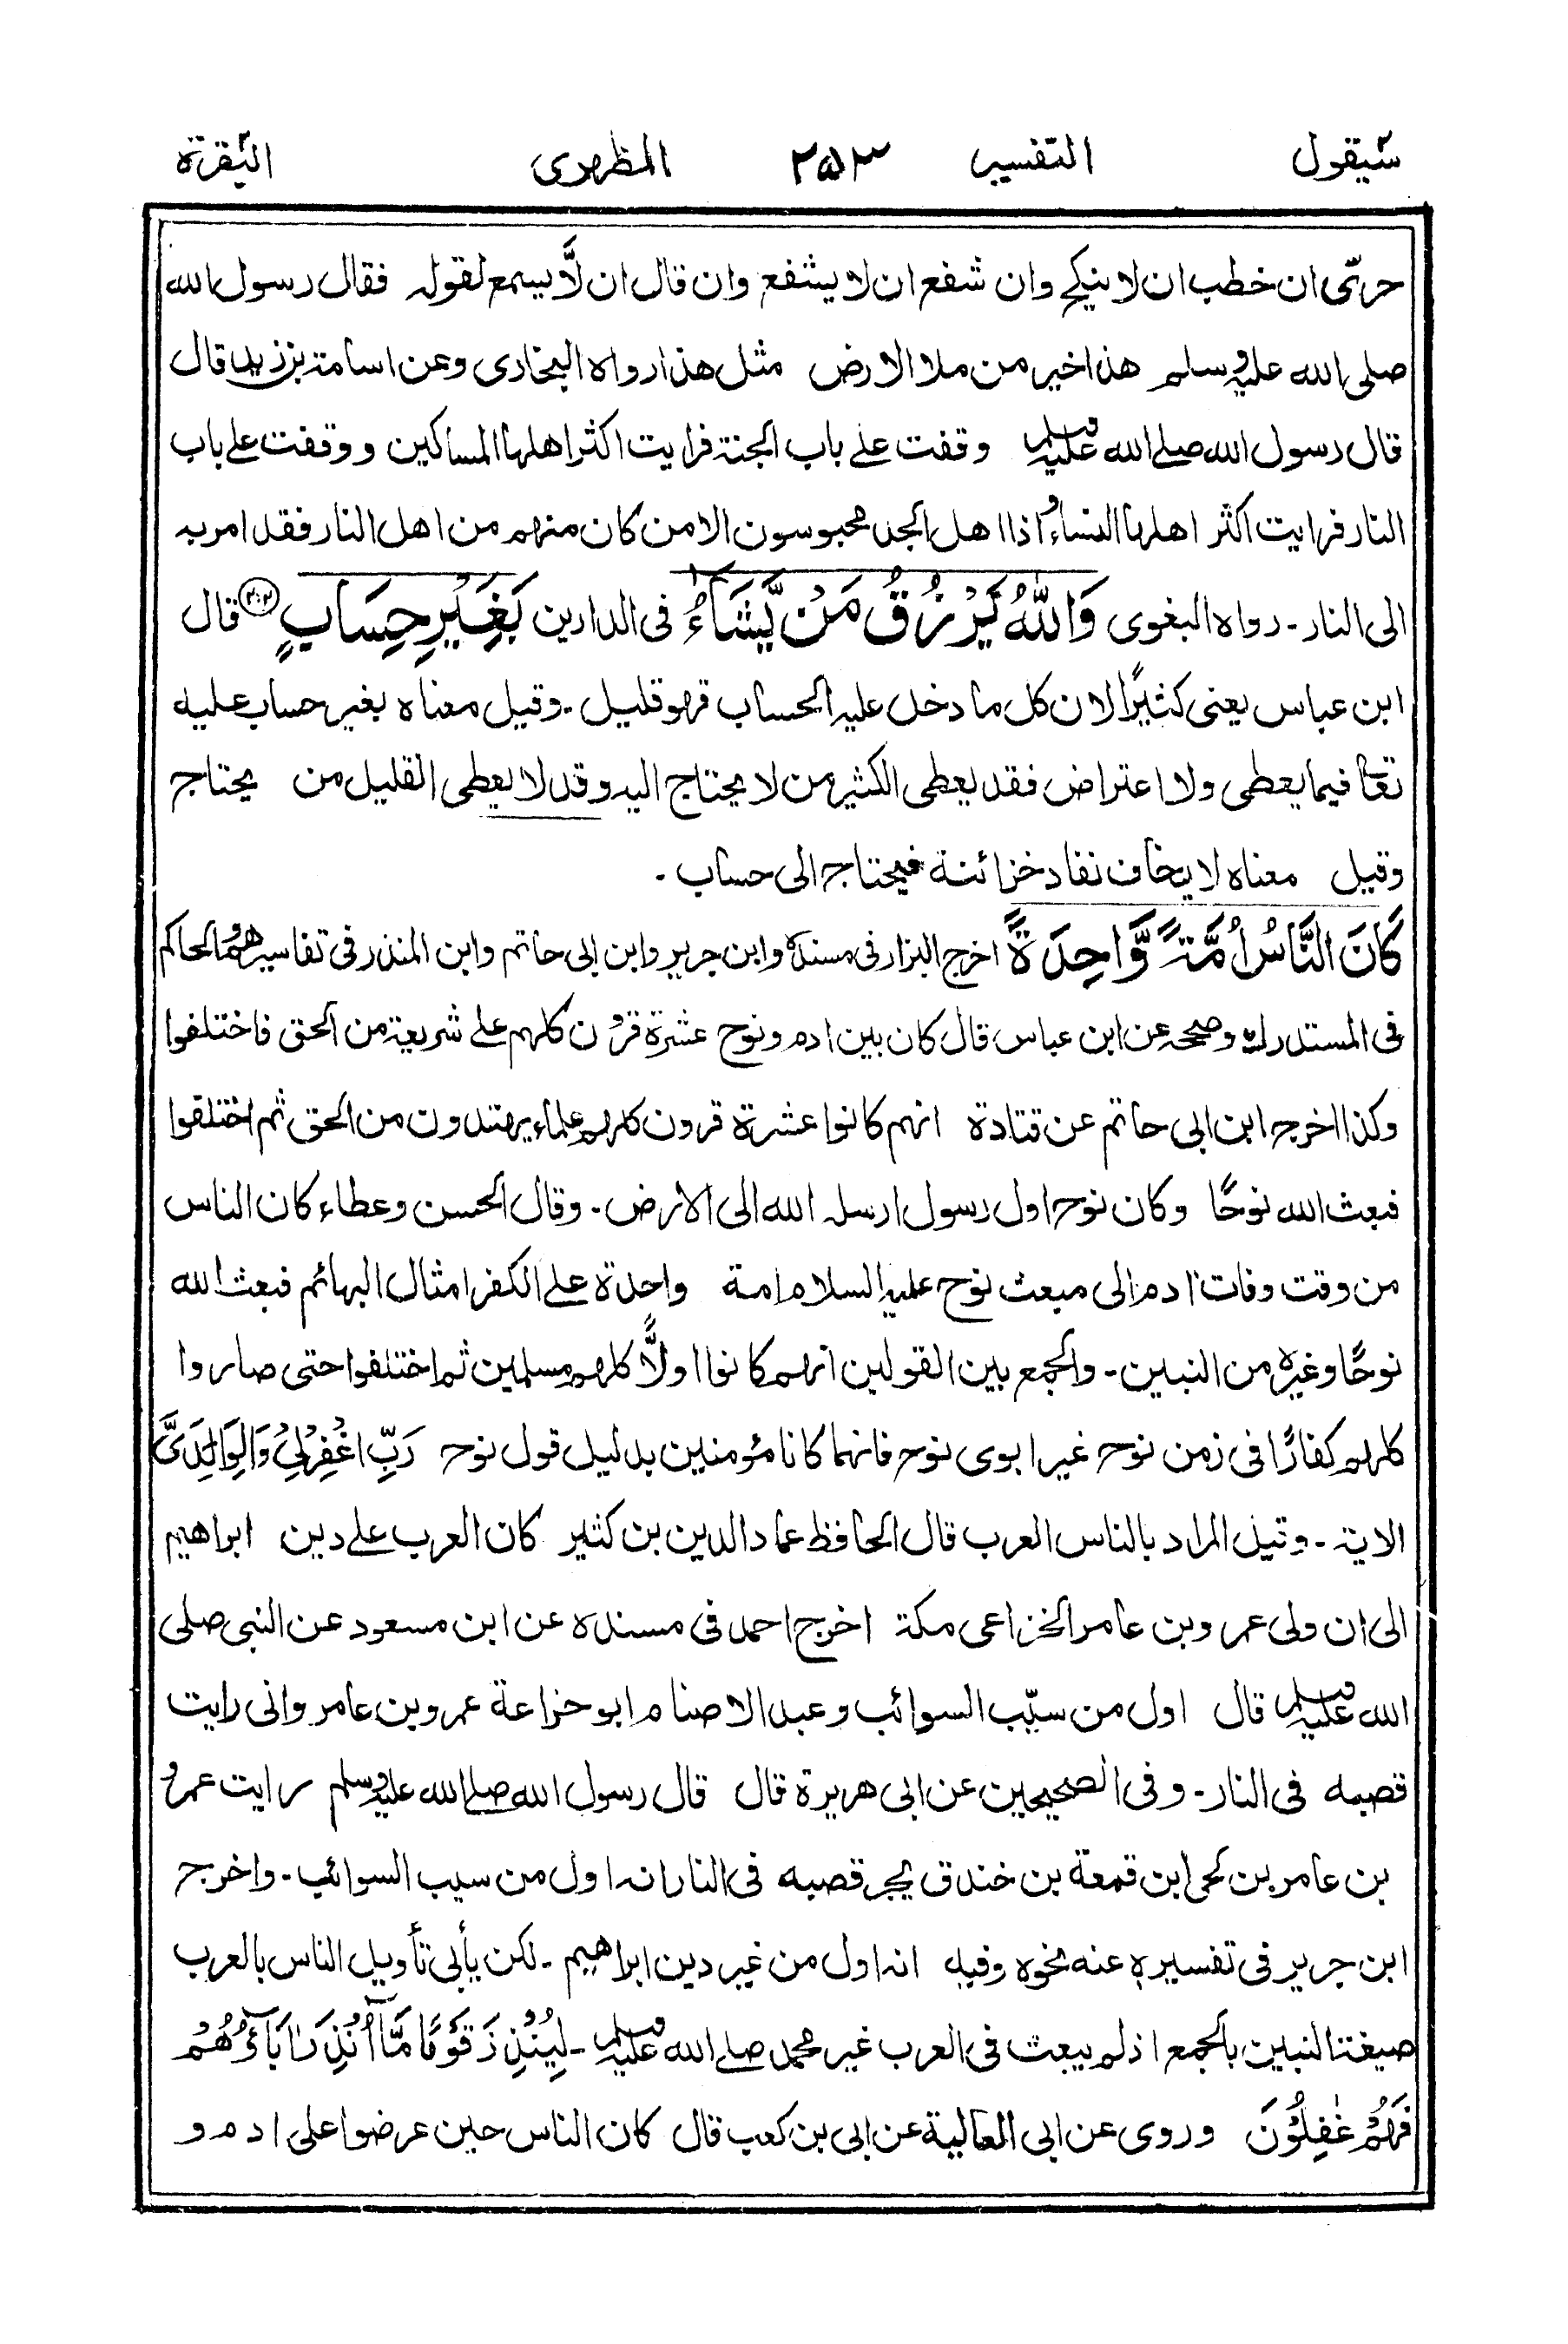 سَيقول التفسير ٢٥٣ المظهرى البقرة
حرىّ ان خطب ان لا ينكح وان شفع ان لا يشفع وان قال ان لَّا يسمع لقوله فقال رسول الله
صلى الله عليه وسلم هذا خير من ملا الارض مثل هذا رواه البخارى وعن اسامة بن زيد قال
قال رسول الله صلى الله عليه وسلم وقفت على باب الجنة فرايت اكثر اهلها المساكين ووقفت على باب
النار فرايت اكثر اهلها النساءُ و اذا اهل الجد محبوسون الا من كان منهم من اهل النار فقد امر به
الى النار - رواه البغوى وَاللّٰهُ يَرْزُقُ مَنْ يَّشَآءُ فى الدارين بِغَيْرِ حِسَابٍ ٢١٢ قال
ابن عباس يعنى كثيرًا لان كل ما دخل عليه الحساب فهو قليل - وقيل معناه بغير حساب عليه
تعا فيما يعطى ولا اعتراض فقد يعطى الكثير من لا يحتاج اليه وقد لا يعطى القليل من يحتاج
وقيل معناه لا يخاف نفاد خزائنة فيحتاج الى حساب -
كَانَ النَّاسُ اُمَّةً وَّاحِدَةً اخرج البزار فى مسنده وابن جرير وابن ابى حاتم وابن المنذر فى تفاسيرهم والحاكم
فى المستدرك وصححه عن ابن عباس قال كان بين ادم ونوح عشرة قرون كلهم على شريعة من الحق فاختلفوا
وكذا اخرجه ابن ابى حاتم عن قتادة انهم كانوا عشرة قرون كلهم علماء يهتدون من الحق ثم اختلفوا
فبعث الله نوحًا وكان نوح اول رسول ارسله الله الى الارض - وقال الحسن وعطاء كان الناس
من وقت وفات ادم الى مبعث نوح عليه السلام امة واحدة على الكفر امثال البهائم فبعث الله
نوحًا وغيره من النبين - والجمع بين القولين انهم كانوا اولًا كلهم مسلمين ثم اختلفوا حتى صاروا
كلهم كفارًا فى زمن نوح غير ابوى نوح فانهما كانا مؤمنين بدليل قول نوح رَبِّ اغْفِرْلِيْ وَلِوَالِدَىَّ
الاية - وقيل المراد بالناس العرب قال الحافظ عماد الدين بن كثير كان العرب على دين ابراهيم
الى ان ولى عمرو بن عامر الخزاعى مكة اخرج احمد فى مسنده عن ابن مسعود عن النبى صلى
الله عليه وسلم قال اول من سيّب السوائب وعبد الاصنام ابو خزاعة عمرو بن عامر وانى رايت
قصبه فى النار - وفى الصحيحين عن ابى هريرة قال قال رسول الله صلى الله عليه وسلم رايت عمرو
بن عامر بن لحى ابن قمعة بن خندق يجر قصبه فى النار انه اول من سيب السوائب - واخرج
ابن جرير فى تفسيره عنه نحوه وفيه انه اول من غير دين ابراهيم - لكن يأبى تأويل الناس بالعرب
صيغة النبين بالجمع اذ لم يبعث فى العرب غير محمد صلى الله عليه وسلم - لِيُنْذِرَ قَوْمًا مَّآ اُنْذِرَ اٰبَآؤُهُمْ
فَهُمْ غٰفِلُوْنَ وروى عن ابى العالية عن ابى بن كعب قال كان الناس حين عرضوا على ادم و